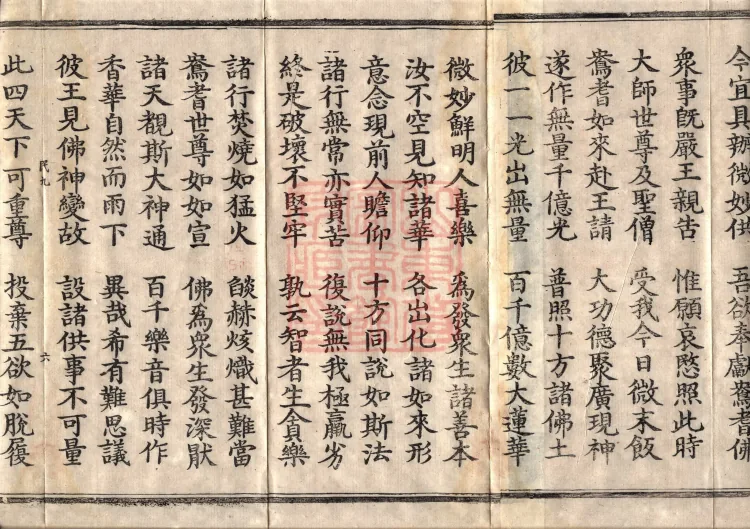 今宜具辦微妙供　吾欲奉獻鴦耆佛
衆事既嚴王親告　惟願哀愍照此時
大師世尊及聖僧　受我今日微末飯
鴦耆如來赴王請　大功德聚廣現神
遂作無量千億光　普照十方諸佛土
彼一一光出無量　百千億數大蓮華
微妙鮮明人喜樂　爲發衆生諸善本
汝不空見知諸華　各出化諸如來形
意念現前人瞻仰　十方同說如斯法
諸行無常亦實苦　復說無我極羸劣
終是破壞不堅牢　孰云智者生貪樂
諸行焚燒如猛火　燄赫炫熾甚難當
鴦耆世尊如如宣　佛爲衆生發深猒
諸天覩斯大神通　百千樂音俱時作
香華自然而雨下　異哉希有難思議
民九　六
彼王見佛神變故　設諸供事不可量
此四天下可重尊　投棄五欲如脫屣